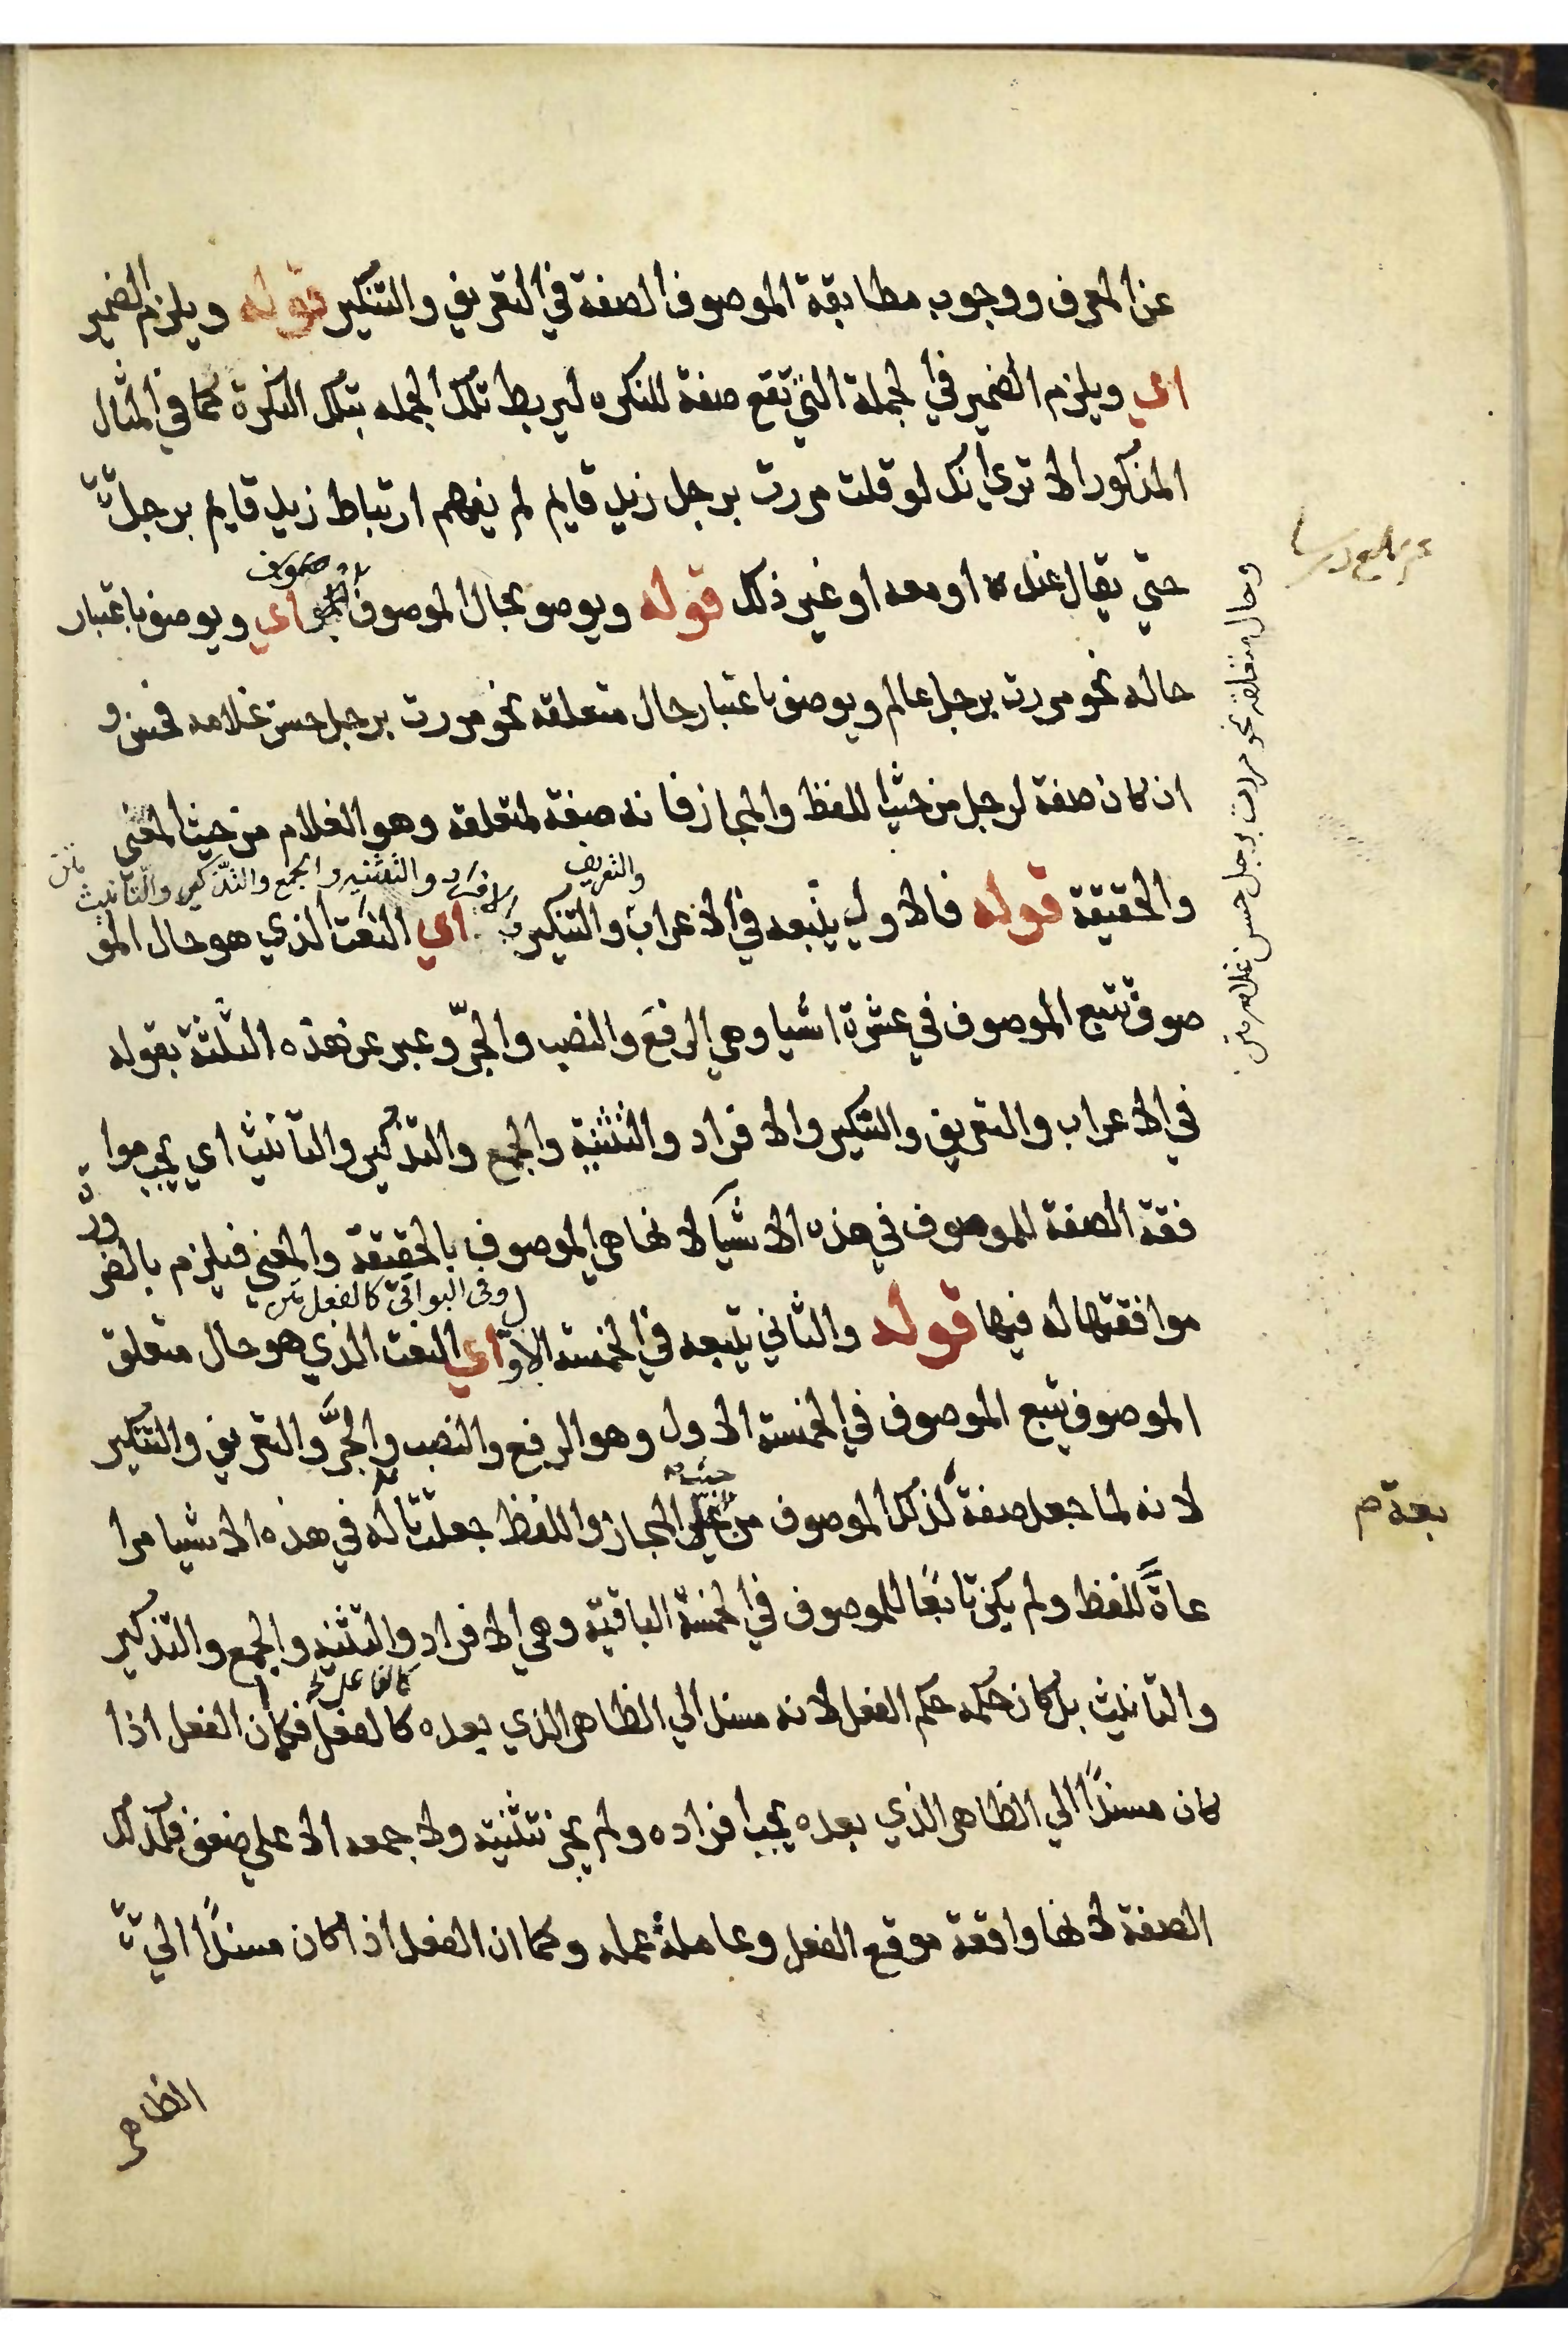 عن المعرف ووجوب مطابقة الموصوف الصفة في التعريف والتنكير قوله ويلزم الضمير
اي ويلزم الضمير في الجملة التي تقع صفة للنكره ليربط تلك الجمله بتلك النكرة كما في المثال
المذكور الا تري انك لو قلت مررت برجل زيد قايم لم يفهم ارتباط زيد قايم برجل
حتي يقال عنده او معه او غير ذلك قوله ويوصف بحال الموصوف اي ويوصف باعتبار
وحال متعلقه نحو مررت برجل حسن غلامه متن
حاله نحو مررت برجل عالم ويوصف باعتبار حال متعلقه نحو مررت برجل حسن غلامه فحسن و
ان كان صفة لرجل من حيث اللفظ والمجاز فانه صفة لمتعلقه وهو الغلام من حيث المعني
والتعريف
الافراد والتثنيه والجمع والتذكير والتأنيث متن
والحقيقة قوله فالاول يتبعه في الاعراب والتنكير اي النعت الذي هو حال المو
صوف تتبع الموصوف في عشرة اشيا وهي الرفع والنصب والجرّ وعبر عن هذه الثلثة بقوله
في الاعراب والتعريف والتنكير والافراد والتثنية والجمع والتذكير والتأنيث اي يجب موا
فقة الصفة للموصوف في هذه الاشيآ لانها هي الموصوف بالحقيقة والمعني فيلزم بالضر
ورة
وفي البواقي كالفعل متن
موافقتها له فيها قوله والثاني يتبعه في الخمسة الاول اي النعت الذي هو حال متعلق
الموصوف يتبع الموصوف في الخمسة الاول وهو الرفع والنصب والجرّ والتعريف والتنكير
حيث
لانه لما جعل صفة لذلك الموصوف من المجاز واللفظ جعلت له في هذه الاشيا مرا
بعة م
عاةً للفظ ولم يكن تابعًا للموصوف في الخمسة الباقية وهي الافراد والتثنيه والجمع والتذكير
والتانيث بل كان حكمه حكم الفعل لانه مسند الي الظاهر الذي بعده كالفعل فكما ان الفعل اذا
كان مسندًا الي الظاهر الذي بعده يجب افراده ولم يجز تثنيته ولا جمعه الا علي ضعف فكذلك
الصفة لانها واقعة موقع الفعل وعاملة عمله وكما ان الفعل اذا كان مسندًا الي
الظاهر